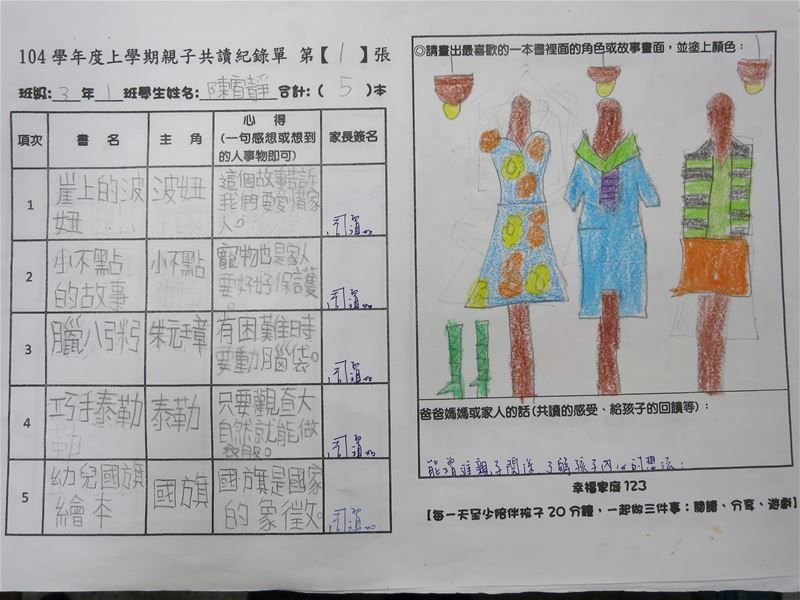 104學年度上學期親子共讀紀錄單 第【1】張
班級:3年1班學生姓名:陳宥靜合計:(5)本
項次
書 名
主 角
心 得
(一句感想或想到
的人事物即可)
家長簽名
1
崖上的波
妞
波妞
這個故事告訴
我們要愛惜家
人。
2
小不點
的故事
小不點
寵物也是家人
要好好保護
。
3
臘八粥
朱元璋
有困難時
要動腦袋。
4
巧手泰勒
泰勒
只要觀查大
自然就能做
衣服。
5
幼兒國旗
繪本
國旗
國旗是國家
的象徵。
◎請畫出最喜歡的一本書裡面的角色或故事畫面,並塗上顏色:
爸爸媽媽或家人的話(共讀的感受、給孩子的回饋等):
能增進親子關係 了解孩子內心的想法
幸福家庭123
【每一天至少陪伴孩子20分鐘,一起做三件事:閱讀、分享、遊戲】